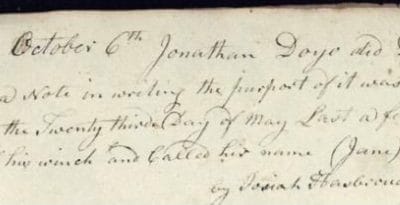 October 6th Jonathan Doyo did
a Note in writing the purport of it was
the Twenty thirde Day of May Last a fe
his winch and Called his name (Jane)
by Josiah Hasbrouc